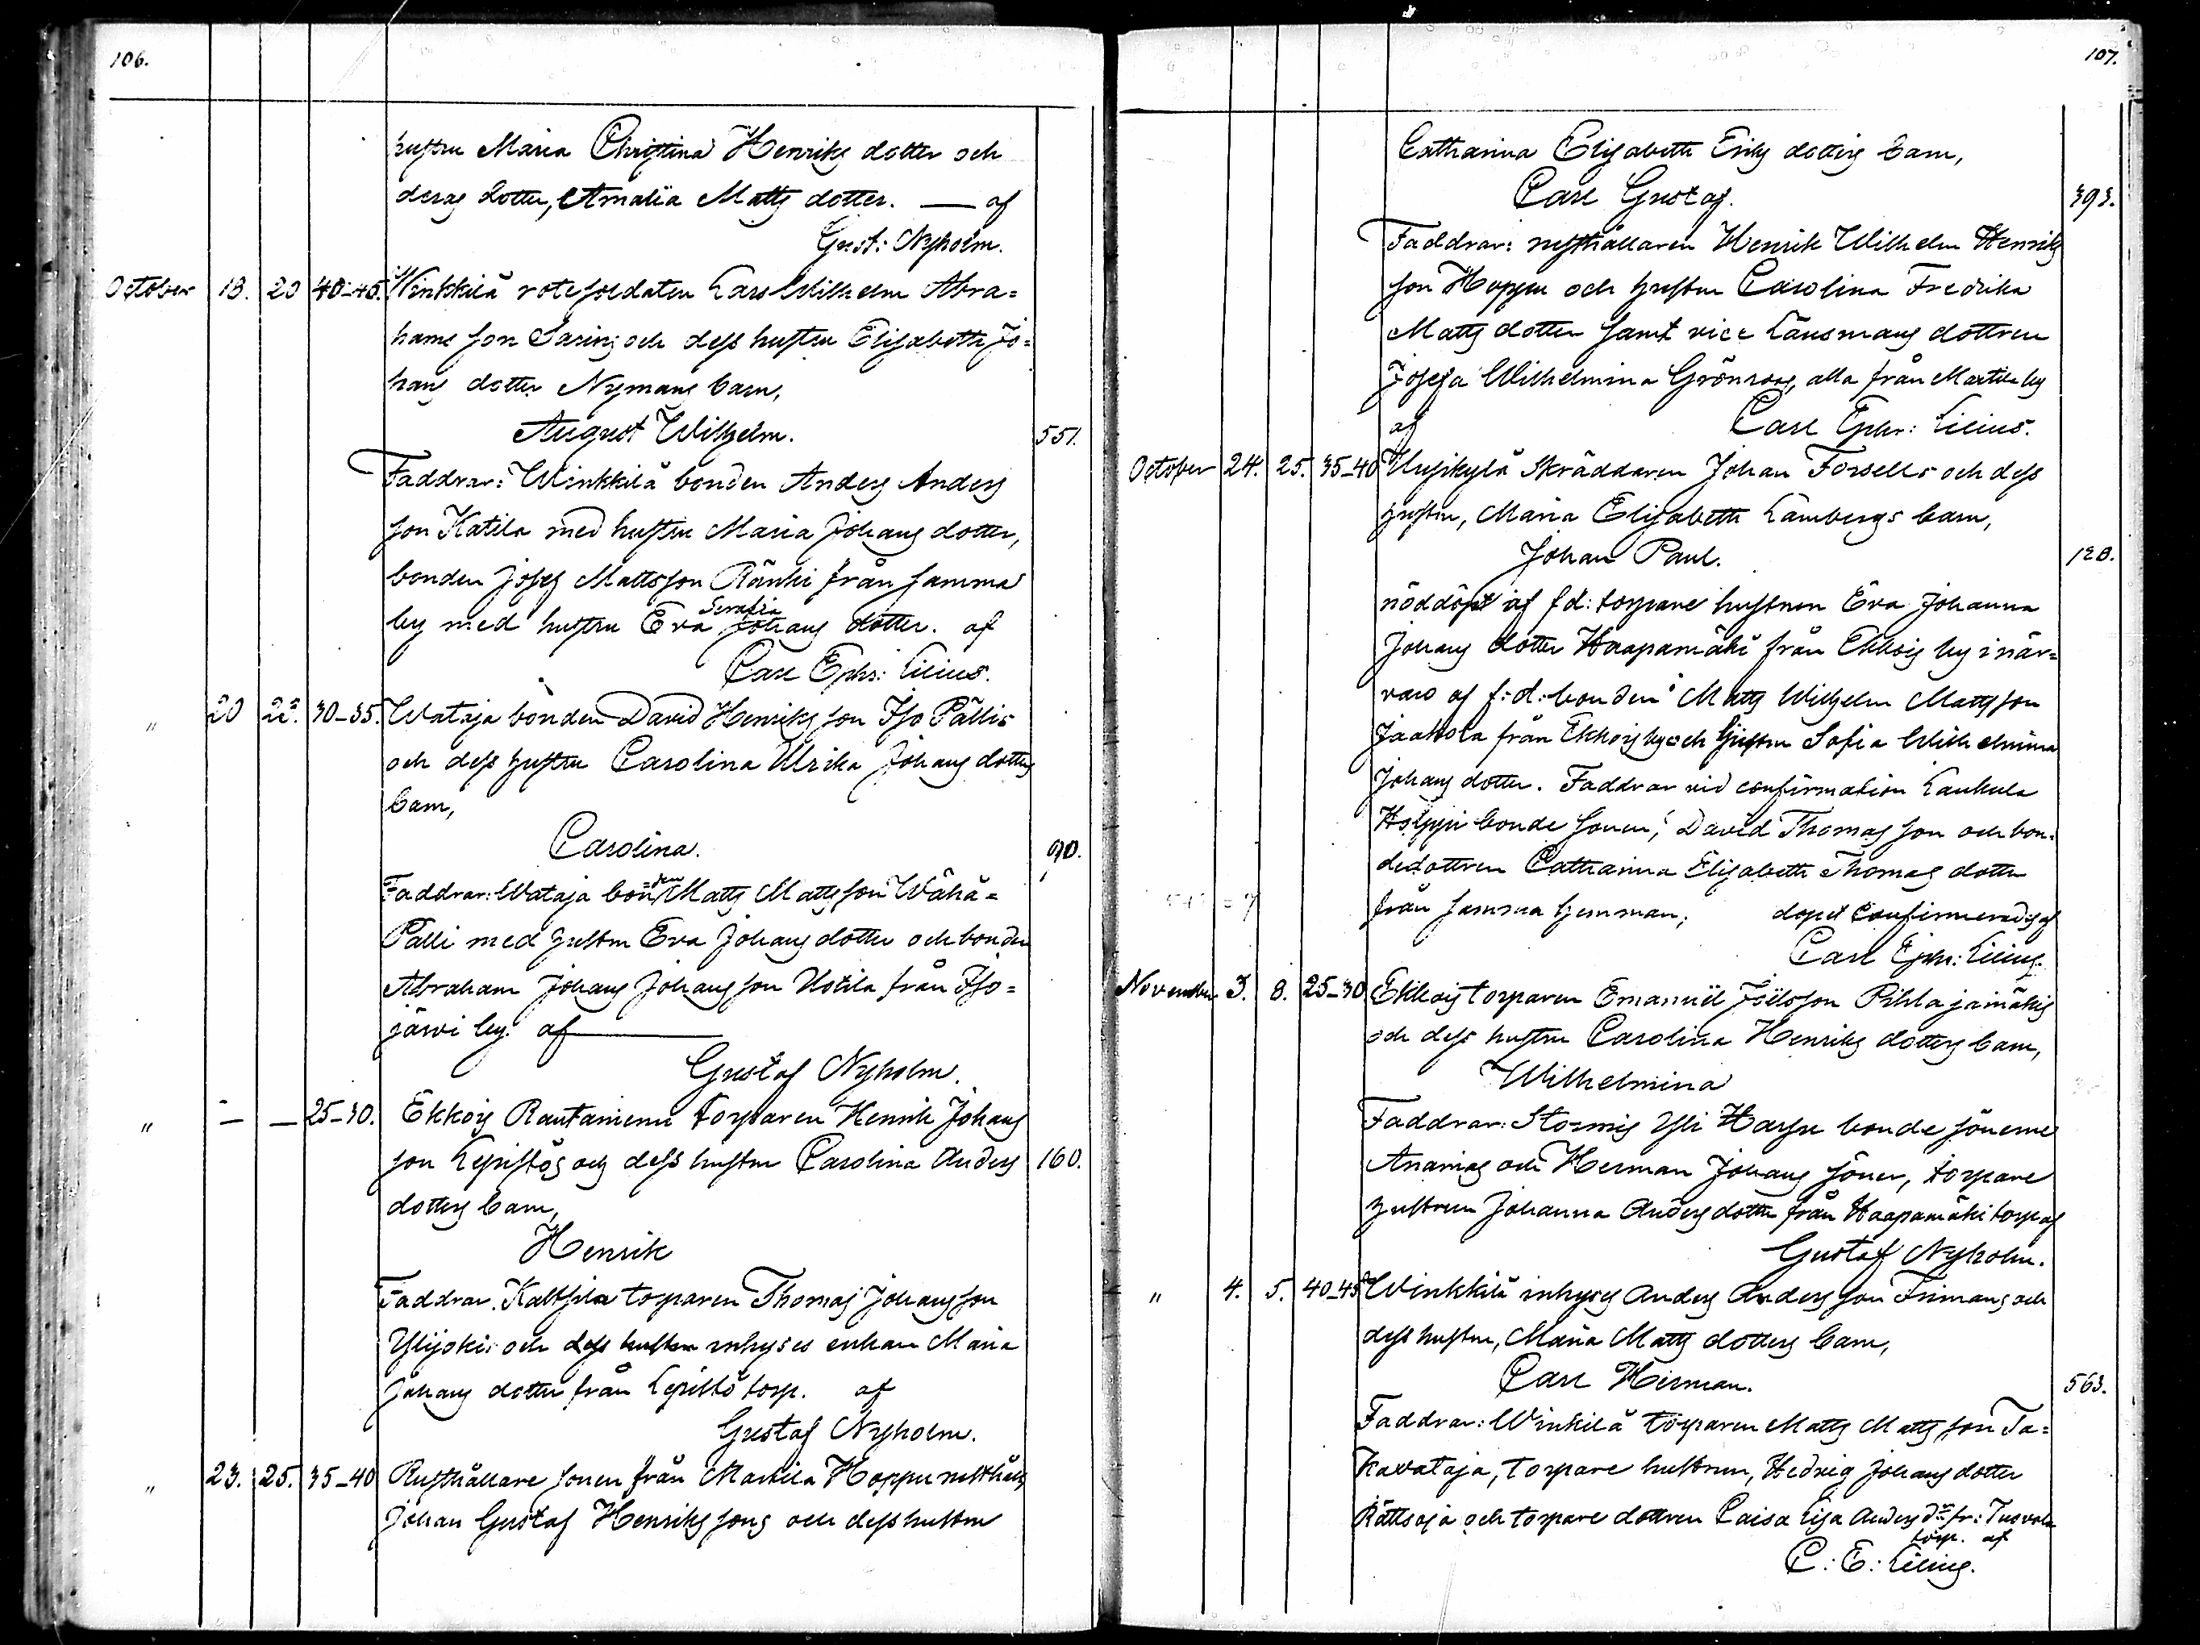 106.
hustru Maria Christina Henriks dotter och
deras dotter, Amalia Matts dotter. — af
Gust: Nyholm.
October 18. 20 40-45. Winkkilä rotesoldaten Lars Wilhelm Abra=
hams son Sarins och dess hustru Elisabeth Jo=
hans dotter Nymans barn,
August Wilhelm. 551.
Faddrar: Winkkilä bonden Anders Anders
son Katila med hustru Maria Johans dotter,
bonden Josef Mattsson Ränki från samma
by med hustru Eva Serafia Johans dotter. af
Carl Ephr: Lilius.
" 20 22. 30-35. Wataja bonden David Henriks son Iso Pällis
och dess hustru Carolina Ulrika Johans dotters
barn,
Carolina. 90.
Faddrar: Wataja bonden Matts Matts son Wähä=
Pälli med hustru Eva Johans dotter och bonden
Abraham Johans Johans son Uotila från Iso=
järvi by. af
Gustaf Nyholm.
" — — 25-30. Ekkois Rautaniemi torparen Henrik Johans
son Lepistös och dess hustru Carolina Anders 160.
dotters barn,
Henrik
Faddrar. Kaltsila torparen Thomas Johans son
Ylijoki och dess hustru inhyses enkan Maria
Johans dotter från Lepistö torp. af
Gustaf Nyholm.
" 23. 25. 35-40 Rusthållare sonen från Marttila Hoppu rusthåll
Johan Gustaf Henriks sons och dess hustru
107.
Catharina Elisabeth Eriks dotters barn,
Carl Gustaf. 393.
Faddrar: rusthållaren Henrik Wilhelm Henriks
son Hoppu och hustru Carolina Fredrika
Matts dotter samt vice Länsmans dottren
Josefa Wilhelmina Grönroos, alla från Marttila by
af Carl Ephr: Lilius.
October 24. 25. 35-40 Uusikylä Skräddaren Johan Forsells och dess
hustru, Maria Elisabeth Lambergs barn,
Johan Paul. 128.
nöddöpt af f.d: torpare hustrun Eva Johanna
Johans dotter Haapamäki från Ekkois by i när=
varo af f:d: bonden Matts Wilhelm Matts son
Jaakola från Ekkois by och hustru Sofia Wilhelmina
Johans dotter. Faddrar vid confirmation Laukula
Hoippu bonde sonen, David Thomas son och bon=
dedottren Catharina Elisabeth Thomas dotter
från samma hemman; dopet confirmerades af
Carl Ephr: Lilius.
November 3. 8. 25-30 Ekkois torparen Emanuel Joelsson Pihlajamäkis
och dess hustru Carolina Henriks dotters barn,
Wilhelmina
Faddrar: Stormis Yli Harju bonde sönerne
Ananias och Herman Johans söner, torpare
hustrun Johanna Anders dotter från Haapamäki torp af
Gustaf Nyholm.
" 4. 5. 40-45 Winkkilä inhyses Anders Anders son Frimans och
dess hustru, Maria Matts dotters barn,
Carl Herman. 563.
Faddrar: Winkilä torparen Matts Matts son Ta=
kavataja, torpare hustrun, Hedvig Johans dotter
Rättsajä och torpare dottren Caisa Lisa Anders dr fr: Tuovola
torp. af
C: E: Lilius.